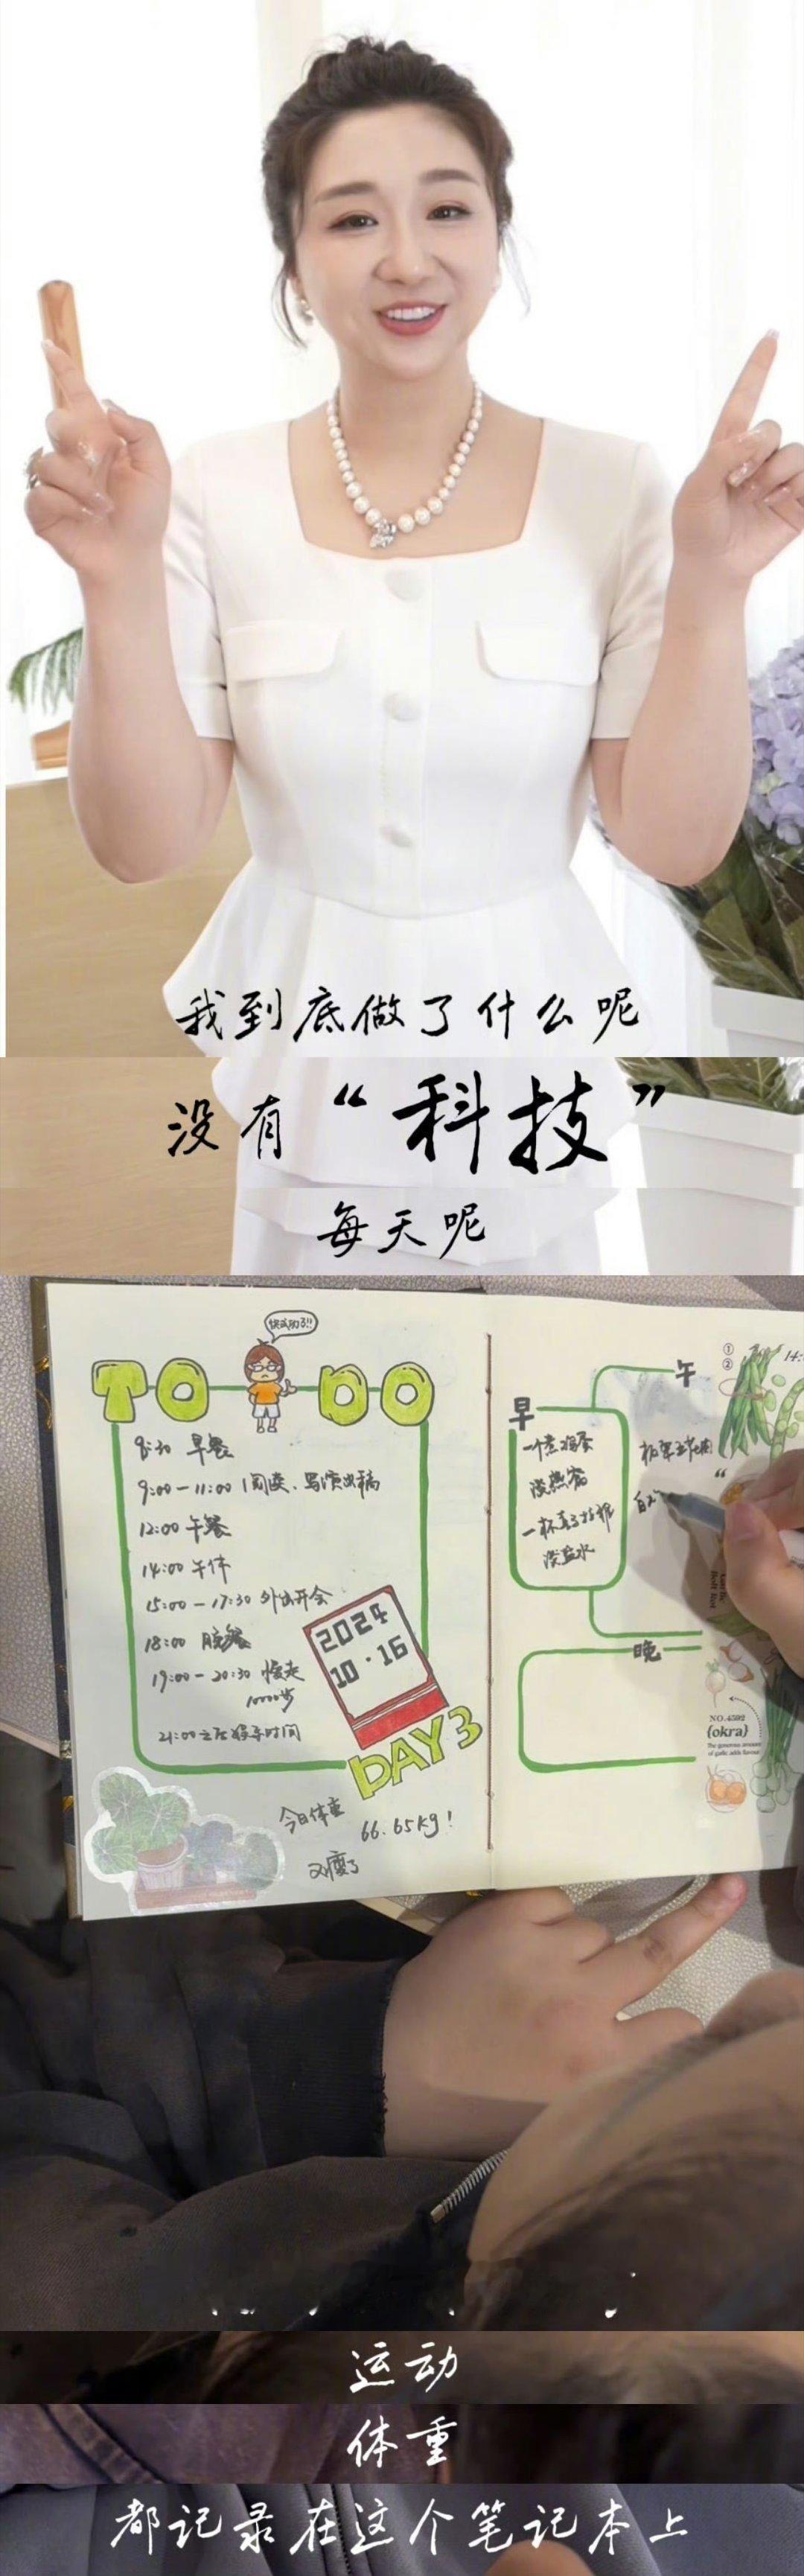 我到底做了什么呢
没有“科技”
每天呢
快成功了!!
TO DO
8:30 早餐
9:00-11:00 阅读、写演出稿
12:00 午餐
14:00 午休
15:00-17:30 外出开会
18:00 晚餐
19:00-20:30 慢走
10000步
21:00之后娱乐时间
2024
10·16
DAY3
今日体重 66.65kg!
又瘦了
早
一个煮鸡蛋
一杯
淡盐水
午
①
②
14:
晚
NO.4592
{okra}
The generous amount
of garlic adds flavour
运动
体重
都记录在这个笔记本上